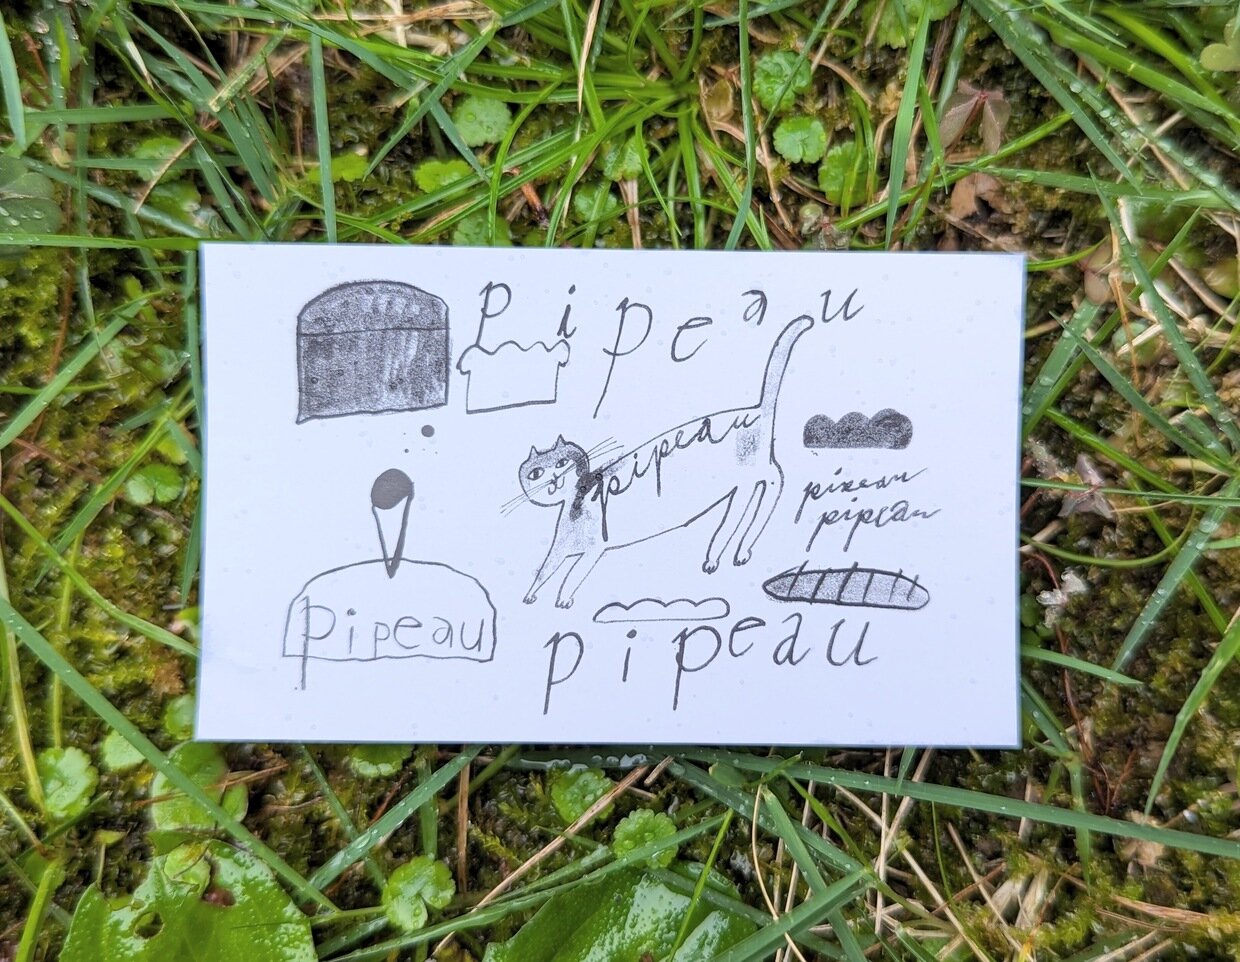 pipeau
pipeau
pipeau
pipeau
pipeau
pipeau